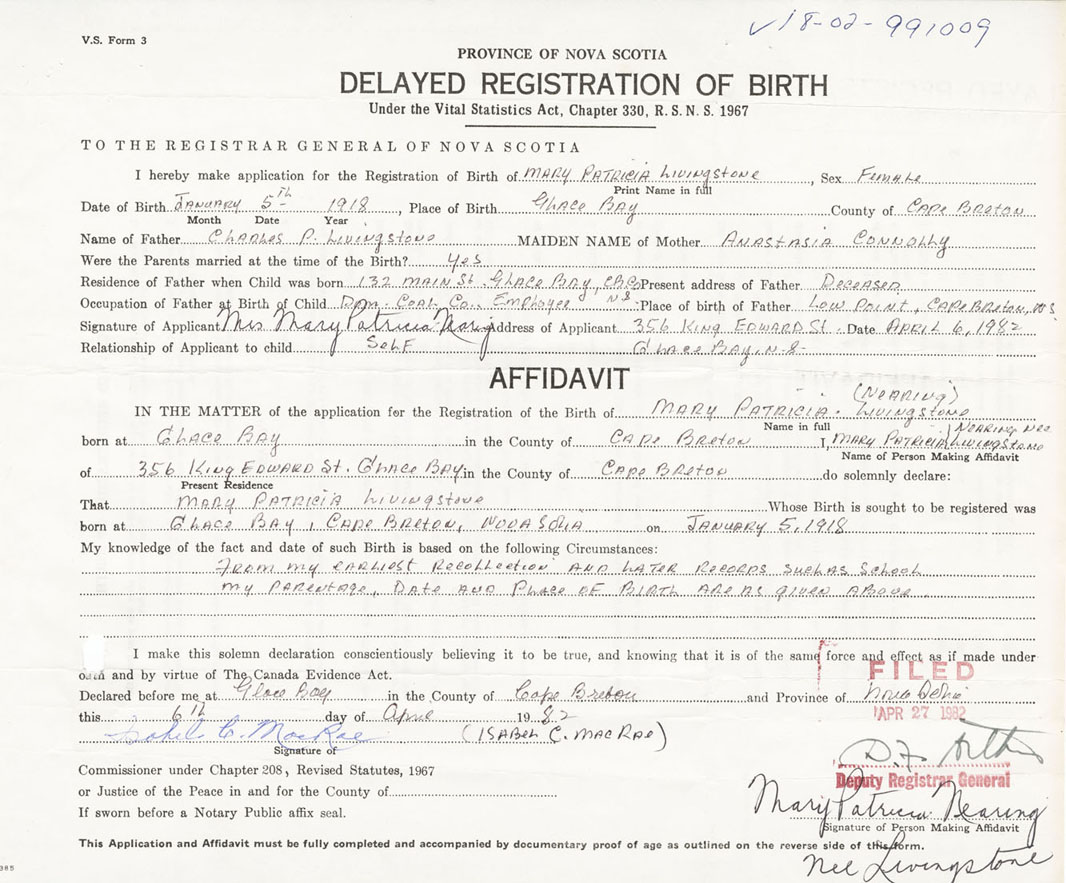 V.S. Form 3
18-02-991009
PROVINCE OF NOVA SCOTIA
DELAYED REGISTRATION OF BIRTH
Under the Vital Statistics Act, Chapter 330, R.S.N.S. 1967
TO THE REGISTRAR GENERAL OF NOVA SCOTIA
I hereby make application for the Registration of Birth of MARY PATRICIA LIVINGSTONE, Sex FEMALE
Print Name in full
Date of Birth JANUARY 5TH 1918, Place of Birth GLACE BAY County of CAPE BRETON
Month Date Year
Name of Father CHARLES P. LIVINGSTONE MAIDEN NAME of Mother ANASTASIA CONNOLLY
Were the Parents married at the time of the Birth? YES
Residence of Father when Child was born 132 MAIN St. GLACE BAY, CBCo Present address of Father DECEASED
Occupation of Father at Birth of Child Dom. COAL Co., EMPLOYEE N S Place of birth of Father LOW POINT, CAPE BRETON, N S.
Signature of Applicant Mrs Mary Patricia Nearing Address of Applicant 356 KING EDWARD St. Date APRIL 6, 1982
Relationship of Applicant to child SELF GLACE BAY, N-S-
AFFIDAVIT
(NEARING)
IN THE MATTER of the application for the Registration of the Birth of MARY PATRICIA LIVINGSTONE
Name in full NEARING NEE
born at GLACE BAY in the County of CAPE BRETON I, MARY PATRICIA LIVINGSTONE
Name of Person Making Affidavit
of 356 KING EDWARD St. GLACE BAY in the County of CAPE BRETON do solemnly declare:
Present Residence
That MARY PATRICIA LIVINGSTONE Whose Birth is sought to be registered was
born at GLACE BAY, CAPE BRETON, NOVA SCOTIA on JANUARY 5, 1918
My knowledge of the fact and date of such Birth is based on the following Circumstances:
FROM MY EARLIEST RECOLLECTION AND LATER RECORDS SUCH AS SCHOOL
MY PARENTAGE, DATE AND PLACE OF BIRTH ARE AS GIVEN ABOVE
I make this solemn declaration conscientiously believing it to be true, and knowing that it is of the same force and effect as if made under
oath and by virtue of The Canada Evidence Act.
FILED
Declared before me at Glace Bay in the County of Cape Breton and Province of Nova Scotia
this 6th day of April 1982
APR 27 1982
Isabel C. MacRae (ISABEL C. MACRAE)
Signature of
D.F.
Commissioner under Chapter 208, Revised Statutes, 1967
Deputy Registrar General
or Justice of the Peace in and for the County of
Mary Patricia Nearing
If sworn before a Notary Public affix seal.
Signature of Person Making Affidavit
This Application and Affidavit must be fully completed and accompanied by documentary proof of age as outlined on the reverse side of this form.
Nee Livingstone
385